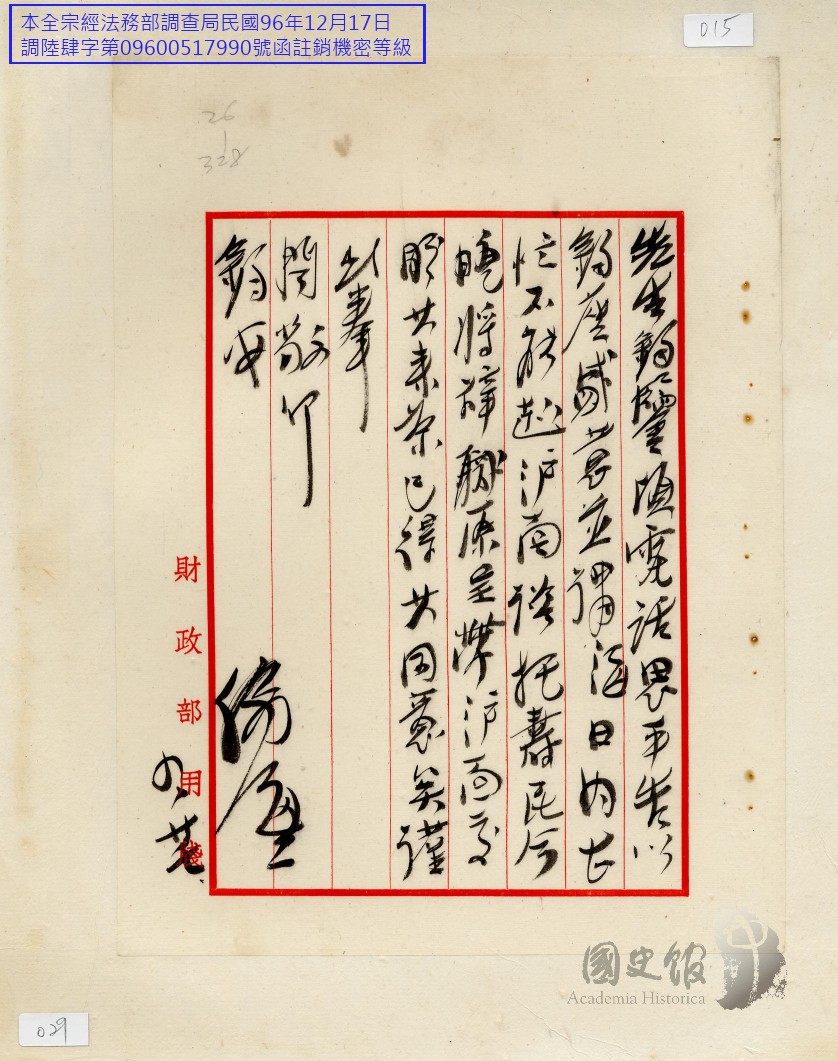 本全宗經法務部調查局民國96年12月17日
調陸肆字第09600517990號函註銷機密等級
015
26
328
先生鈞鑒頃電話思平告以
鈞座感並海日內甚
忙不能赴滬面談托壽民今
晚將辭職原呈帶滬面交
共來已得其同意矣謹
此奉
聞敬叩
鈞安
財政部用箋
國史館
Academia Historica
029